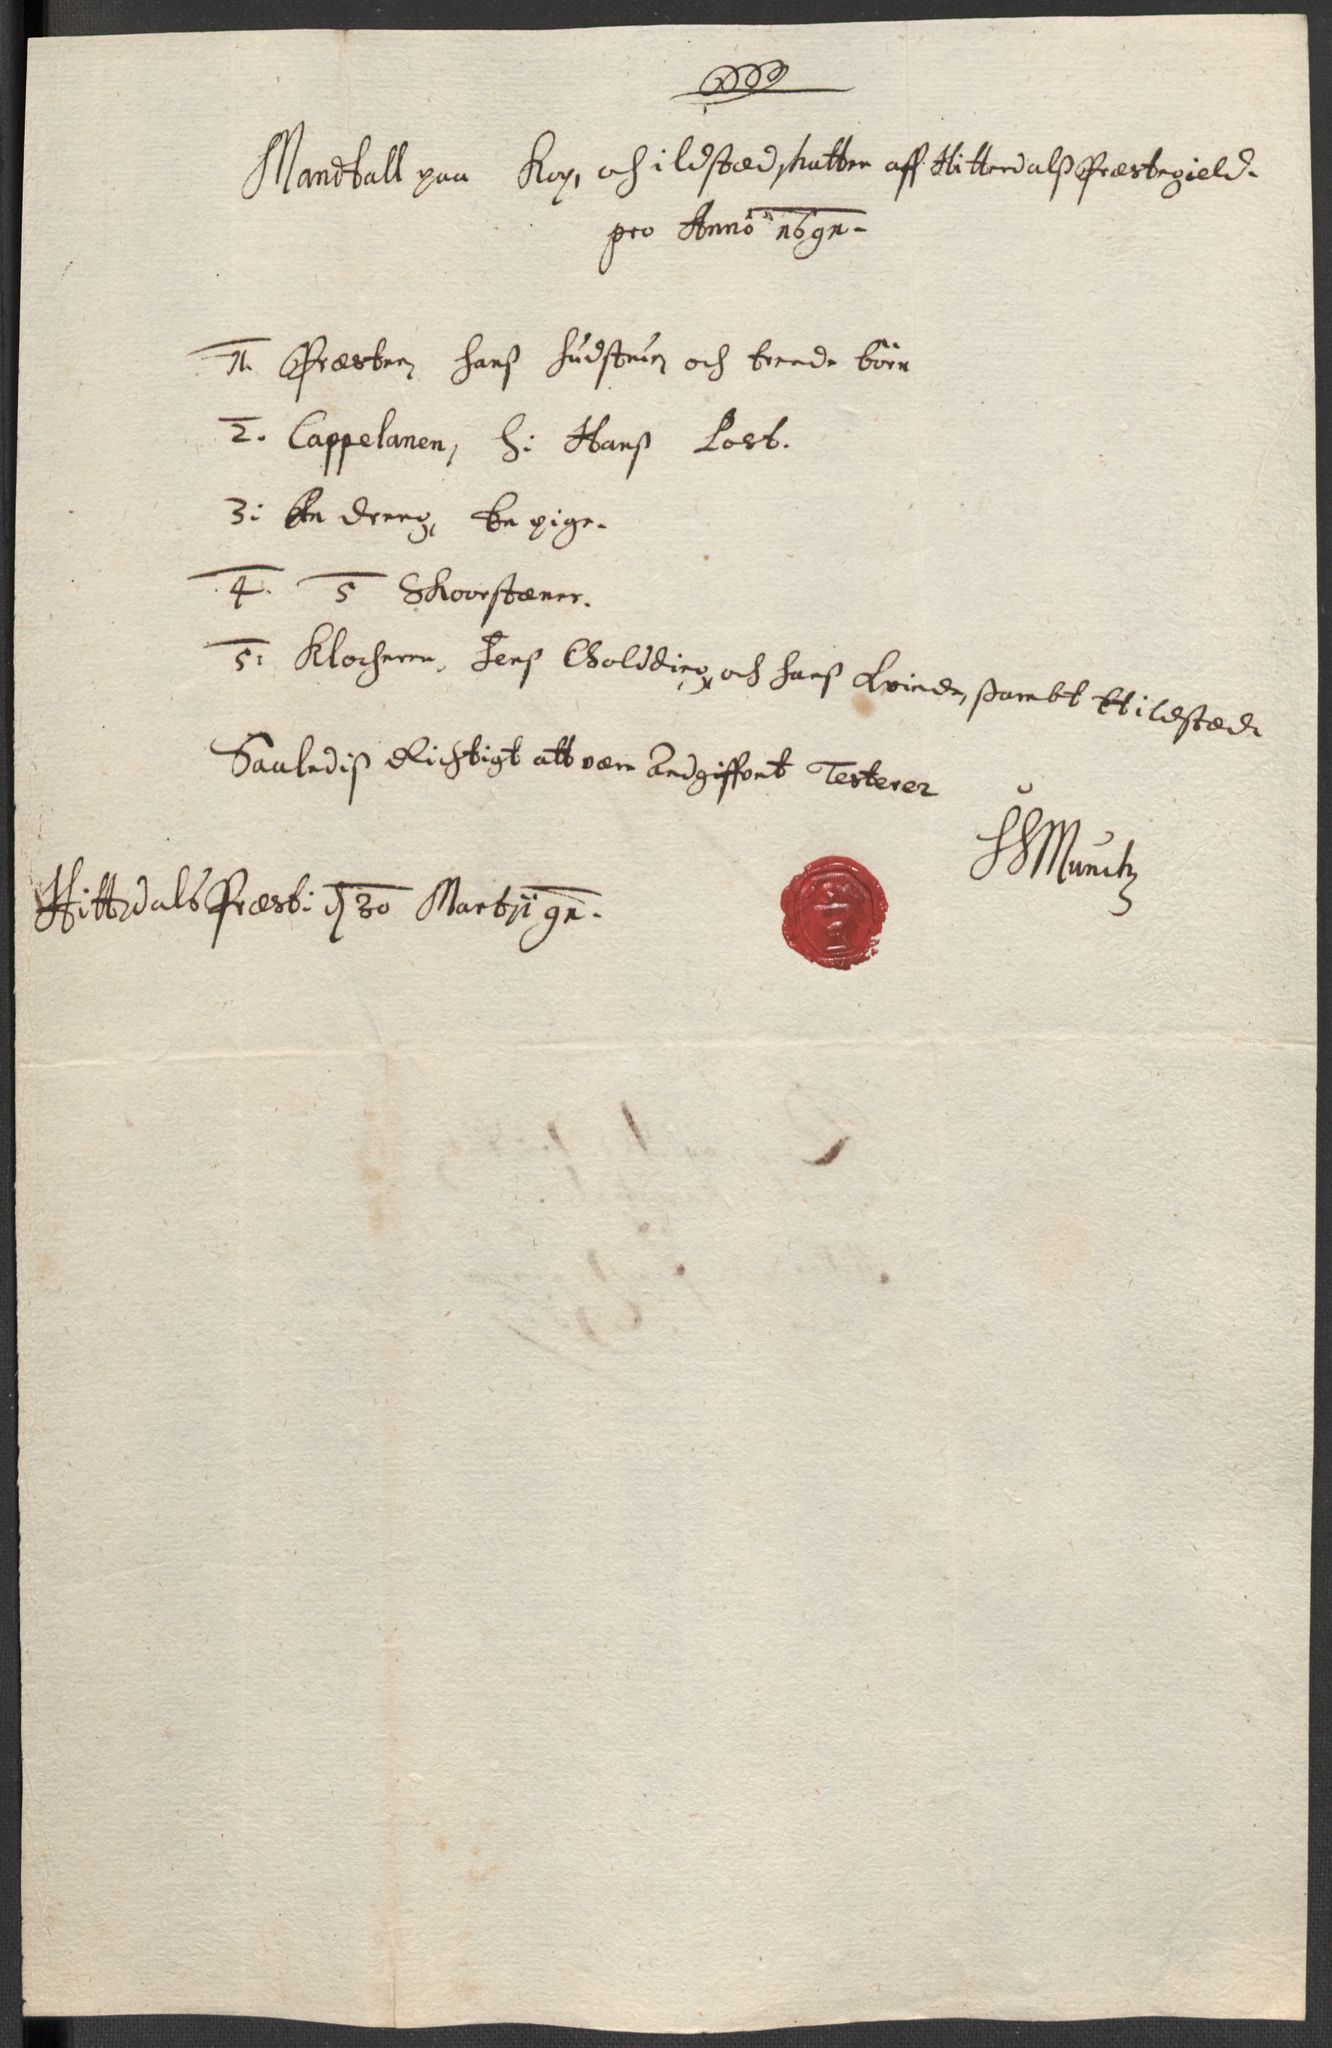 Mandtall paa Kop, och ildstæd skatten aff Hitterdalß Præstegield.
pro Anno 1691.
1. Præsten hanß hustru och trende börn
2. Cappelanen, H: Hanß Lost.
3: En dreng, En pige.
4. 5 Skorstæner.
5: Klocheren, Jenß Colding, och hanß Qvinde, sambt Et ildstæd
Saaledis Richtigt att være Andgiffvet Testerer
Munch
Hitterdals Præst: d 30 Martii 91.